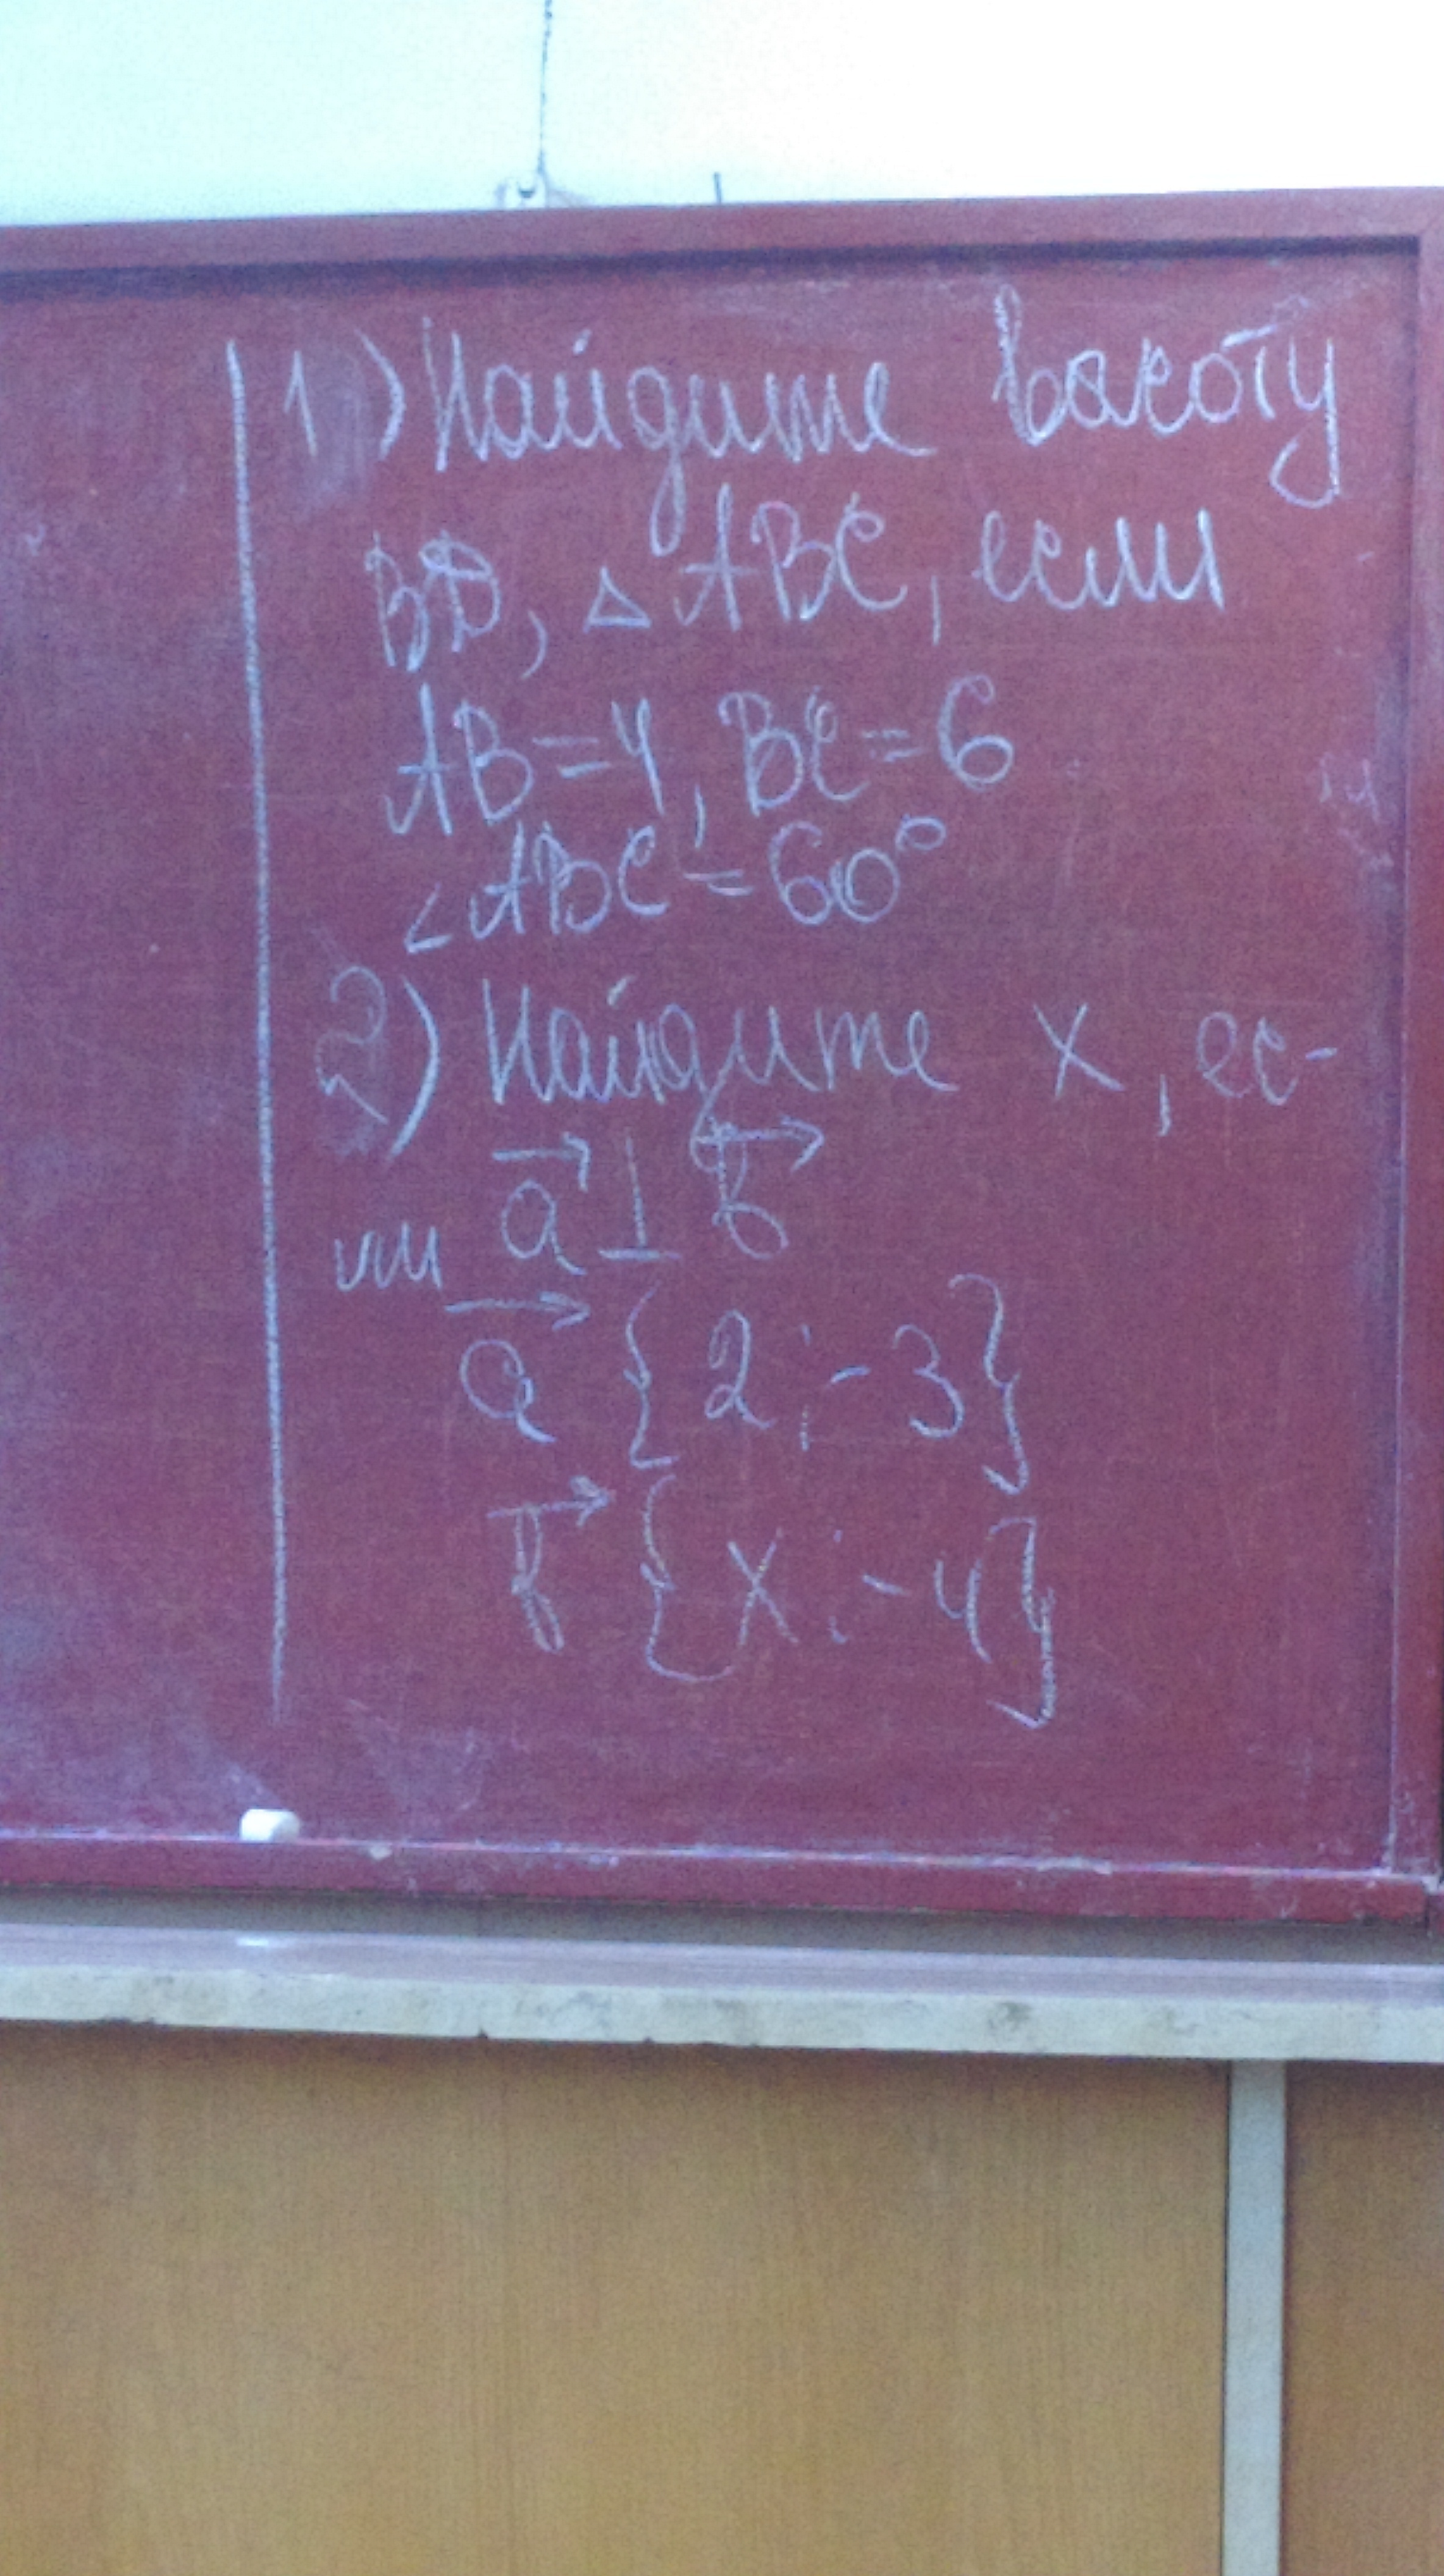 1) Найдите высоту
BD, △ ABC, если
AB=4, BC=6
∠ABC=60°
2) Найдите x, ес-
ли a⃗ ⊥ b⃗
a⃗ {2; -3}
b⃗ {x; -4}